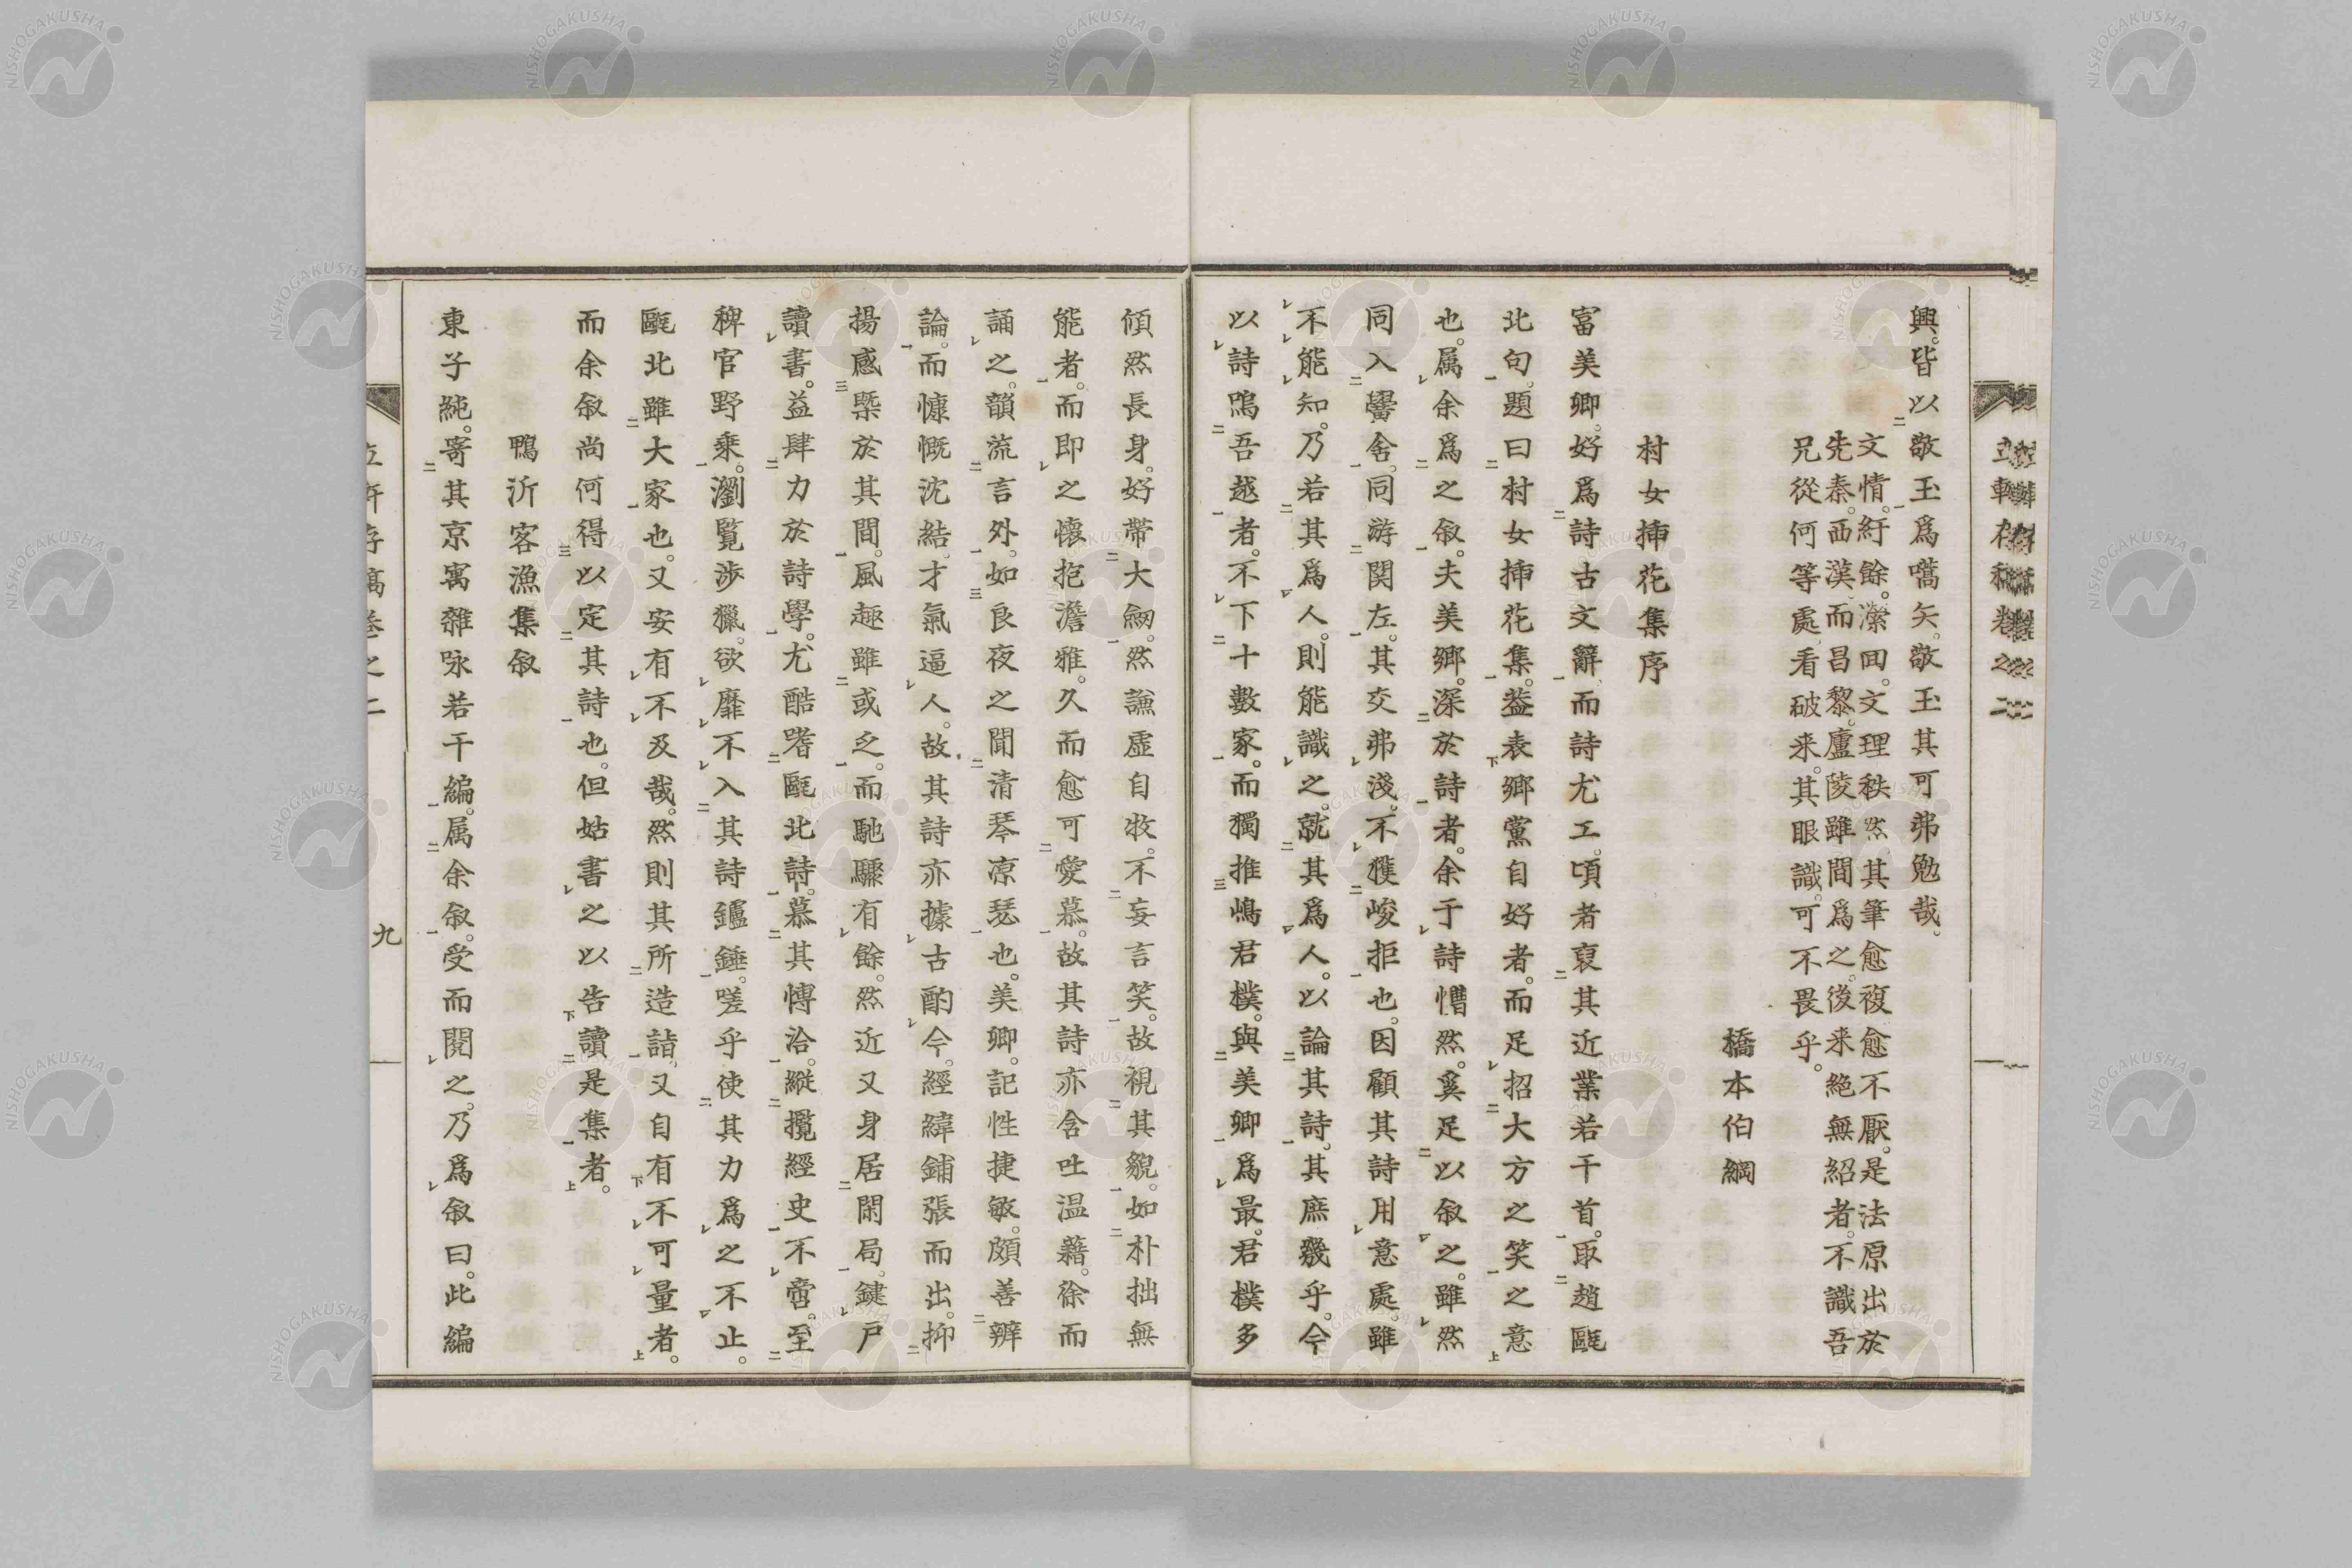 興。皆以敬玉爲嚆矢。敬玉其可弗勉哉。
文情。紆餘。瀠囬。文理秩然其筆愈複愈不厭。是法原出於
先秦。西漢。而昌黎。廬陵雖間爲之。後来絶無紹者。不識吾
兄從何等處看破来。其眼識。可不畏乎。
橋本伯綱
村女挿花集序
富美卿。好爲詩古文辭。而詩尤工。頃者裒其近業若干首。取趙甌
北句。題曰村女挿花集。葢表郷黨自好者。而足招大方之笑之意
也。属余爲之叙。夫美郷。深於詩者。余于詩懵然。奚足以叙之。雖然
同入黌舎。同游関左。其交弗淺。不獲峻拒也。因顧其詩用意處。雖
不能知。乃若其爲人。則能識之。就其爲人。以論其詩。其庶幾乎。今
以詩鳴吾越者。不下十數家。而獨推嶋君樸。與美卿爲最。君樸多
頎然長身。好帶大劒。然謙虛自牧。不妄言笑。故視其貌。如朴拙無
能者。而即之懷抱澹雅。久而愈可愛慕。故其詩亦含吐温藉。徐而
誦之。韻流言外。如良夜之聞清琴凉瑟也。美卿。記性捷敏。頗善辨
論。而慷慨沈結。才氣逼人。故其詩亦據古酌今。經緯鋪張而出。抑
揚感槩於其間。風趣雖或乏。而馳驟有餘。然近又身居閑局。鍵戸
讀書。益肆力於詩學。尤酷嗜甌北詩。慕其愽洽。縦攬經史不啻。至
稗官野乘。瀏覧渉獵。欲靡不入其詩鑪錘。嗟乎使其力爲之不止。
甌北雖大家也。又安有不及哉。然則其所造詣、又自有不可量者。
而余叙尚何得以定其詩也。但姑書之以告讀是集者。
鴨沂客漁集叙
東子純。寄其京寓雜咏若干編。属余叙。受而閲之。乃爲叙曰。此編
九